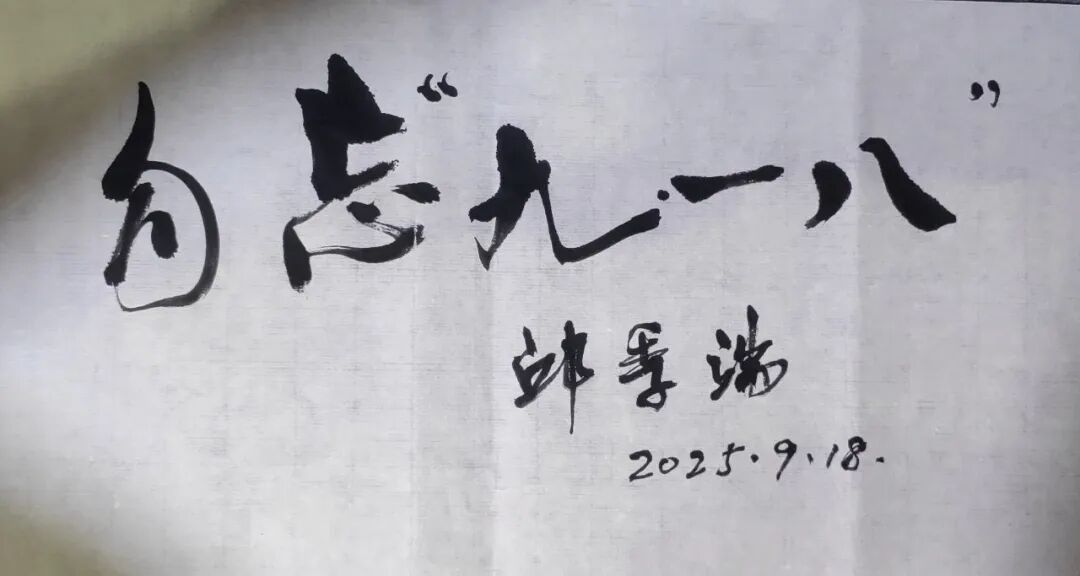 勿忘“九·一八”
邱季端
2025.9.18.